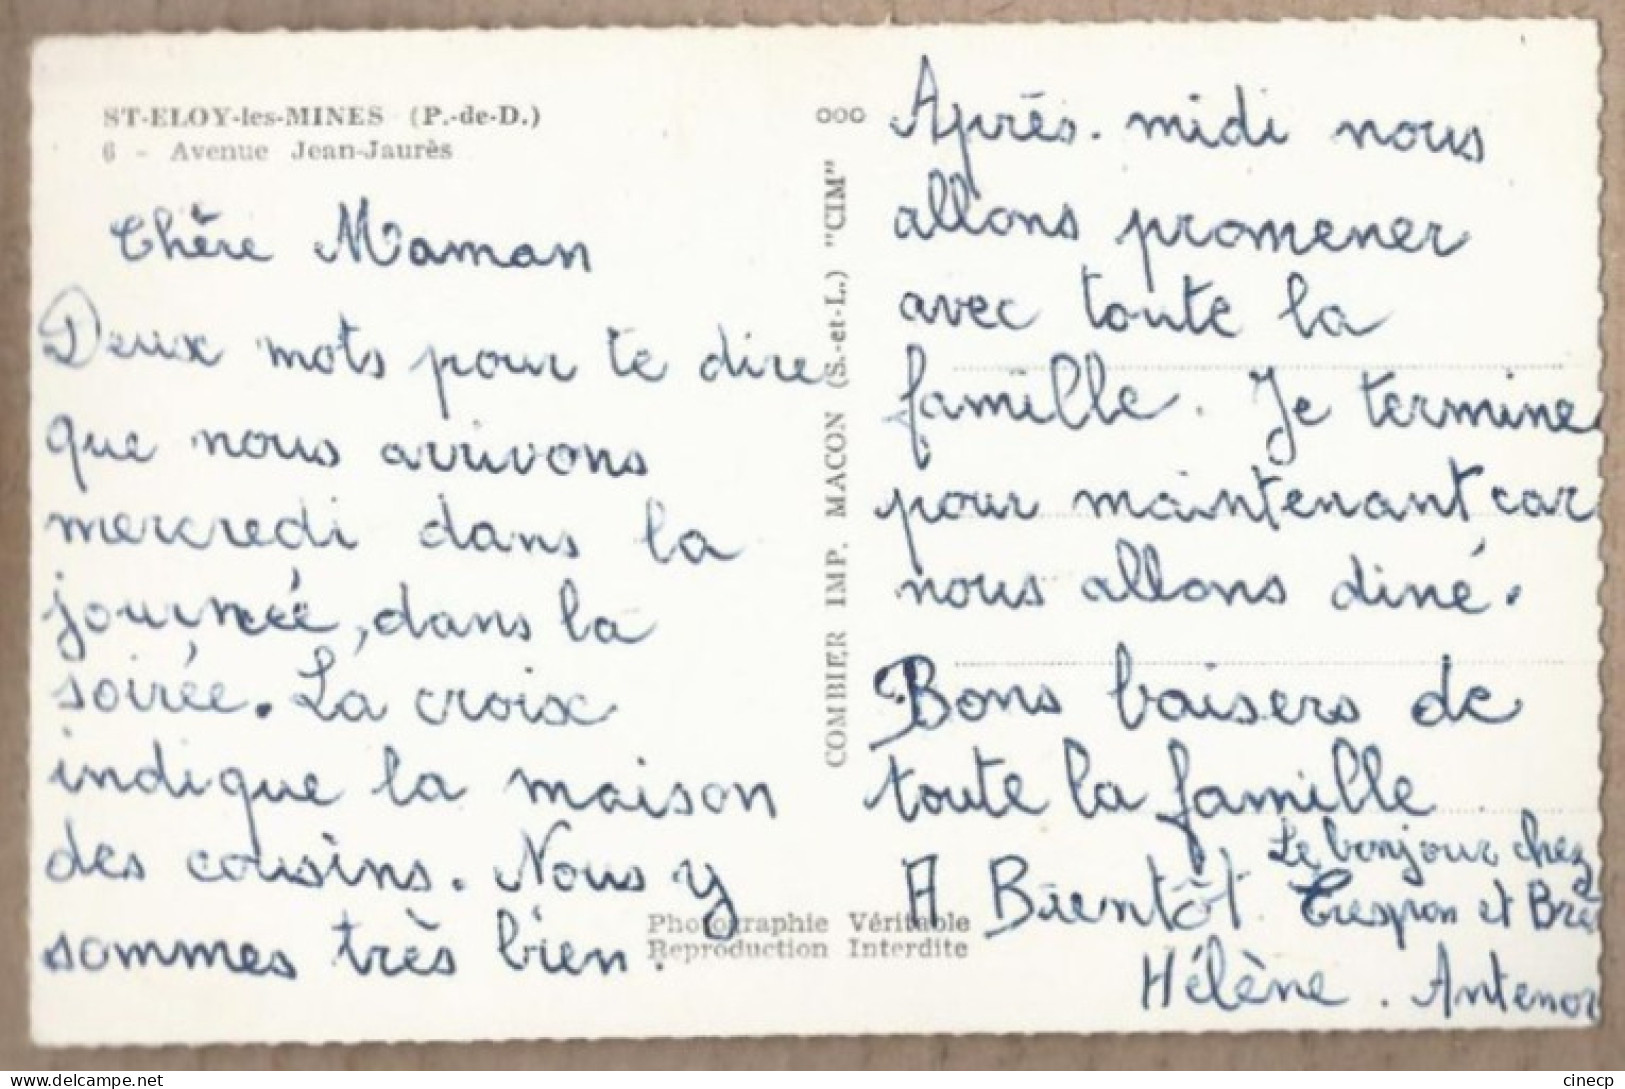 ST-ELOY-les-MINES (P.-de-D.)
6 - Avenue Jean-Jaurès
Chère Maman
Deux mots pour te dire
que nous arrivons
mercredi dans la
journée, dans la
soirée. La croix
indique la maison
des cousins. Nous y
sommes très bien.
COMBIER IMP. MACON (S.-et-L.) "CIM"
Photographie Véritable
Reproduction Interdite
Après-midi nous
allons promener
avec toute la
famille. Je termine
pour maintenant car
nous allons diné.
Bons baisers de
toute la famille
A Bientôt
Le bonjour chez
Crespon et
Hélène. Antenor
cinecp